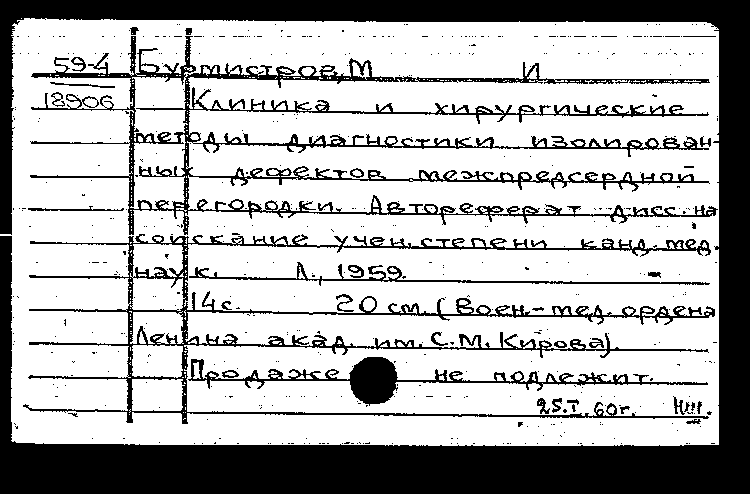 59-4 Бурмистров, М И
18906 Клиника и хирургические
методы диагностики изолирован-
ных дефектов межпредсердной
перегородки. Автореферат дисс. на
соискание учен. степени канд. мед.
наук. Л., 1959.
14с. 20 см. (Воен.-мед. ордена
Ленина акад. им. С.М. Кирова).
Продаже не подлежит.
25.I.60г.